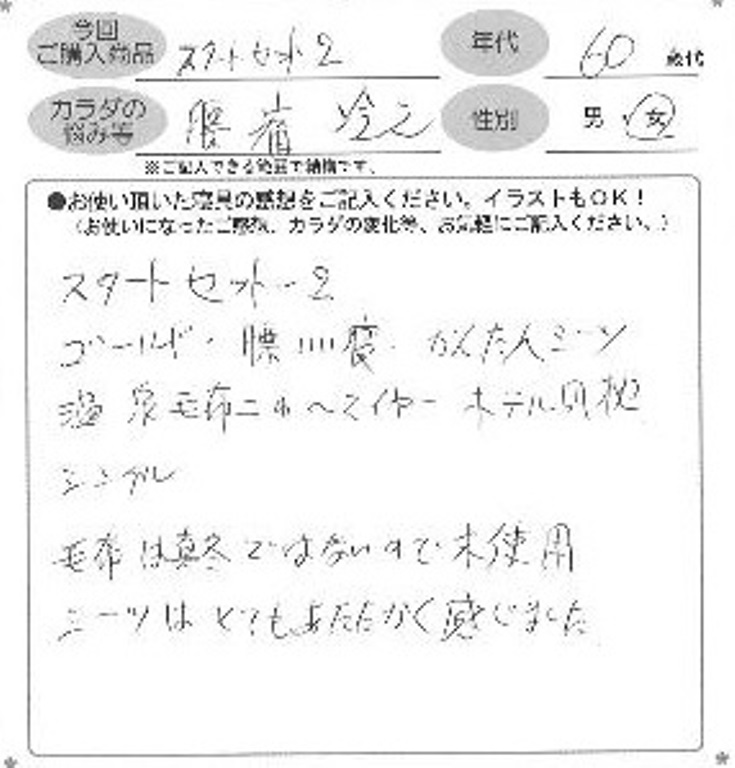 今回
ご購入商品
スタートセット2
年代
60 歳代
カラダの
悩み等
腰痛 冷え
性別
男 女
※ご記入できる範囲で結構です。
●お使い頂いた寝具の感想をご記入ください。イラストもOK！
（お使いになったご感想、カラダの変化等、お気軽にご記入ください。）
スタートセット-2
ゴールド・腰 かんたんシーツ
温泉毛布ニューヘスイヤー ホテル風枕
シングル
毛布は真冬ではないので未使用
シーツはとてもあたたかく感じました